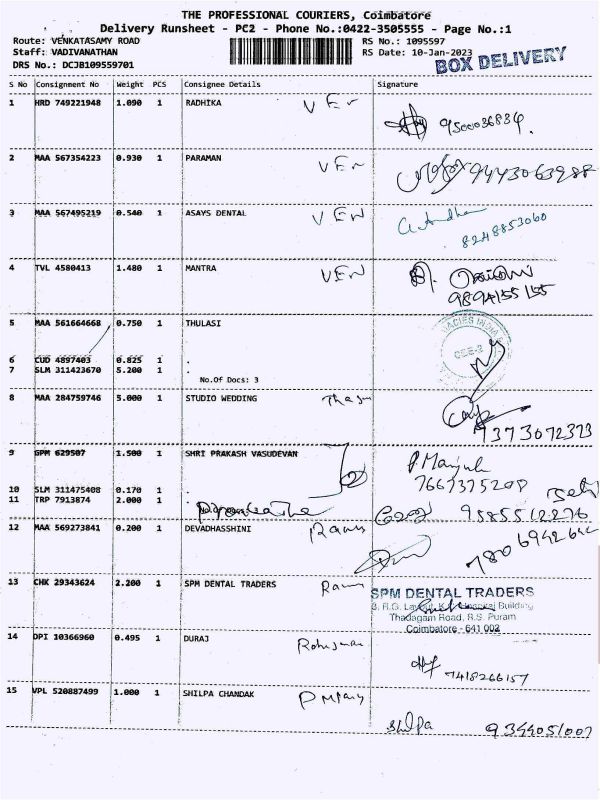 THE PROFESSIONAL COURIERS, Coimbatore
Delivery Runsheet - PC2 - Phone No.:0422-3505555 - Page No.:1
Route: VENKATASAMY ROAD RS No.: 1095597
Staff: VADIVANATHAN RS Date: 10-Jan-2023
DRS No.: DCJB109559701 BOX DELIVERY
S No Consignment No Weight PCS Consignee Details Signature
1 HRD 749221948 1.090 1 RADHIKA VEN
9500036834.
2 MAA 567354223 0.930 1 PARAMAN VEN
9443063988
3 MAA 567495219 0.540 1 ASAYS DENTAL VEN
8248853060
4 TVL 4580413 1.480 1 MANTRA VEN
9894155155
5 MAA 561664668 0.750 1 THULASI
6 CUD 4897403 0.825 1 .
7 SLM 311423670 5.200 1 .
No.Of Docs: 3
8 MAA 284759746 5.000 1 STUDIO WEDDING
9373072323
9 GPM 629507 1.500 1 SHRI PRAKASH VASUDEVAN
P. Manjula
7667375208
10 SLM 311475408 0.170 1 .
11 TRP 7913874 2.000 1
9585512276
12 MAA 569273841 0.200 1 DEVADHASSHINI Ramu
13 CHK 29343624 2.200 1 SPM DENTAL TRADERS Ramu
SPM DENTAL TRADERS
Thadagam Road, R.S. Puram
Coimbatore - 641 002
14 DPI 10366960 0.495 1 DURAJ
7418266157
15 VPL 520887499 1.000 1 SHILPA CHANDAK
Shilpa 9344051007